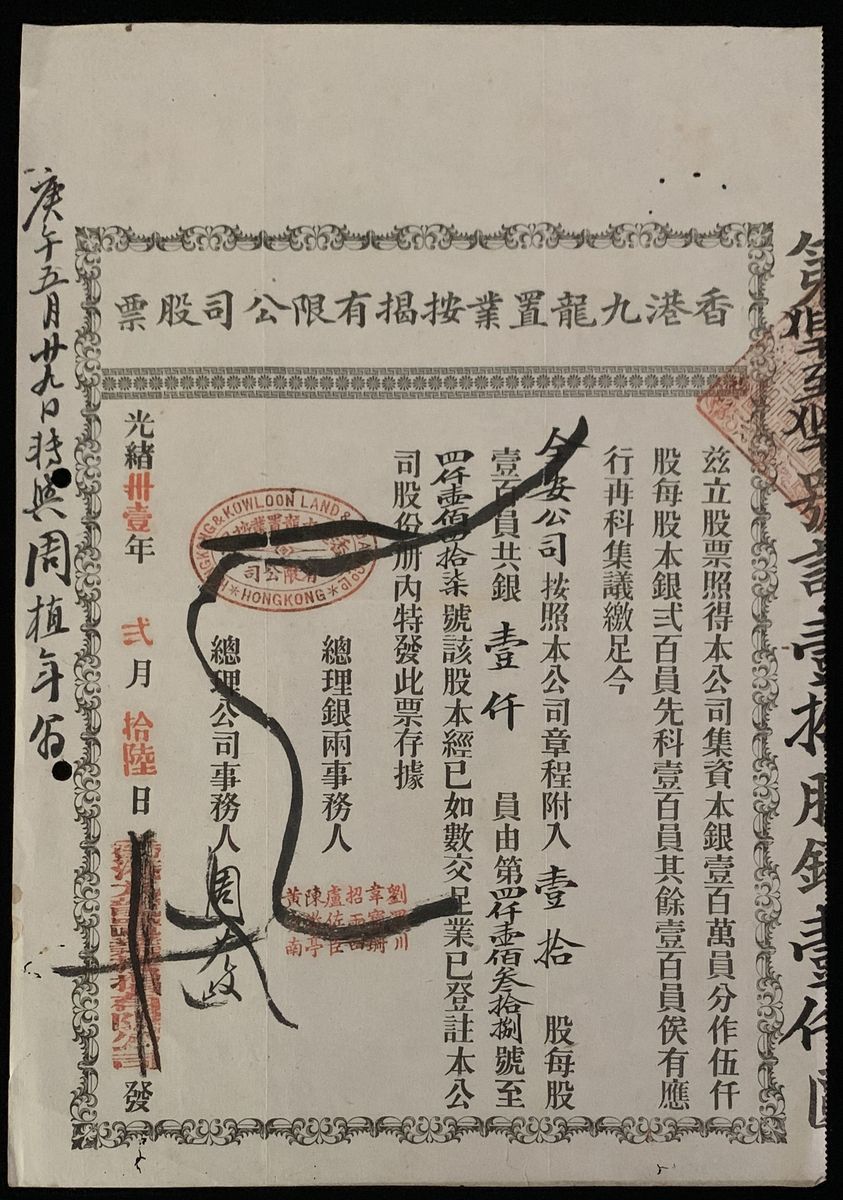 香港九龍置業按揭有限公司股票
茲立股票照得本公司集資本銀壹百萬員分作伍仟
股每股本銀弍百員先科壹百員其餘壹百員俟有應
行再科集議繳足今
安公司按照本公司章程附入壹拾股每股
壹百員共銀壹仟員由第四仟壹佰叁拾捌號至
四仟壹佰四拾柒號該股本經已如數交足業已登註本公
司股份册內特發此票存據
總理銀兩事務人
劉川
韋寶珊
招雨田
盧佐臣
陳亭
黃南
總理公司事務人
周
HONGKONG & KOWLOON LAND & LOAN Co Ld
九龍置業按
有限公司
HONGKONG
光緒卅壹年弍月拾陸日
發
號計壹拾股銀壹仟
庚午五月廿九日轉與周植年翁